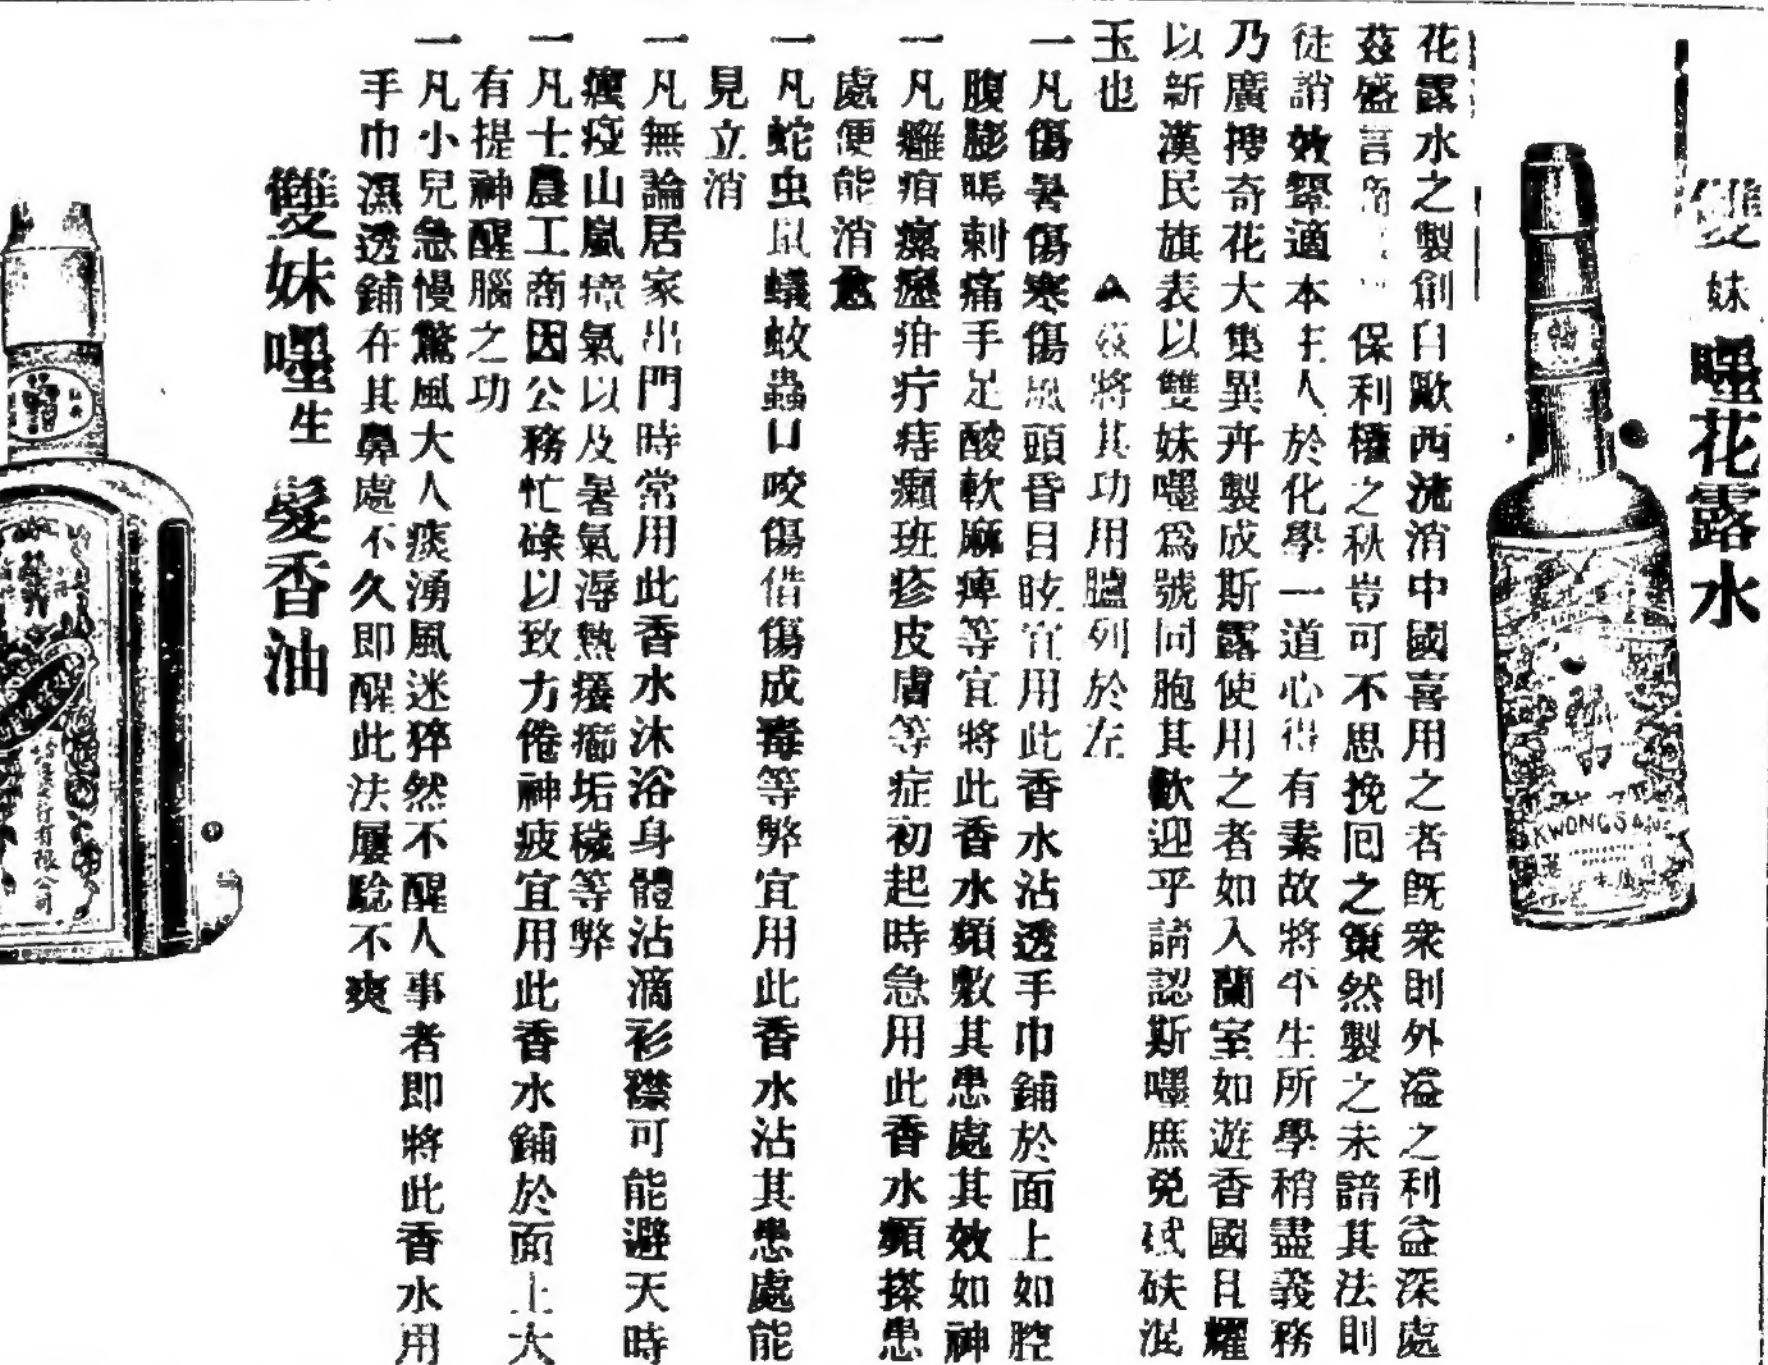 雙妹嚜花露水
花露水之製創自歐西流消中國喜用之者既衆則外溢之利益深處
茲盛言 保利權之秋豈可不思挽囘之策然製之未諳其法則
徒誚效顰適本主人於化學一道心得有素故將平生所學稍盡義務
乃廣搜奇花大集異卉製成斯露使用之者如入蘭室如遊香國且耀
以新漢民旗表以雙妹嚜爲號同胞其歡迎乎請認斯嚜庶免碔砆混
玉也 ▲茲將其功用臚列於左
一凡傷暑傷寒傷風頭昏目眩宜用此香水沾透手巾鋪於面上如腔
腹膨 刺痛手足酸軟麻痺等宜將此香水頻敷其患處其效如神
一凡癰疽 疳疔痔癩班疹皮膚等症初起時急用此香水頻搽患
處便能消愈
一凡蛇虫鼠蟻蚊蟲口咬傷借傷成毒等弊宜用此香水沾其患處能
見立消
一凡無論居家出門時常用此香水沐浴身體沾滴衫襟可能避天時
疫山嵐瘴氣以及暑氣溽熱 垢穢等弊
一凡士農工商因公務忙碌以致力倦神疲宜用此香水鋪於面上大
有提神醒腦之功
一凡小兒急慢驚風大人痰湧風迷猝然不醒人事者即將此香水用
手巾濕透鋪在其鼻處不久即醒此法屢驗不爽
雙妹嚜生髮香油
KWONG SANG
發行有限公司